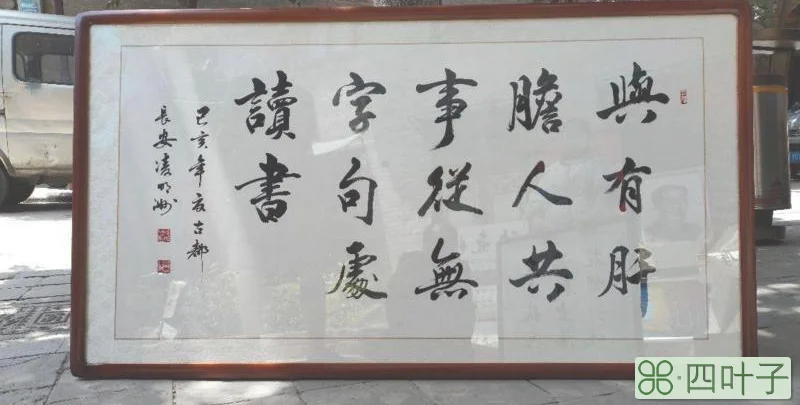 與有肝
膽人共
事從無
字句處
讀書
己亥年夏古都
長安凌明洲
四叶子